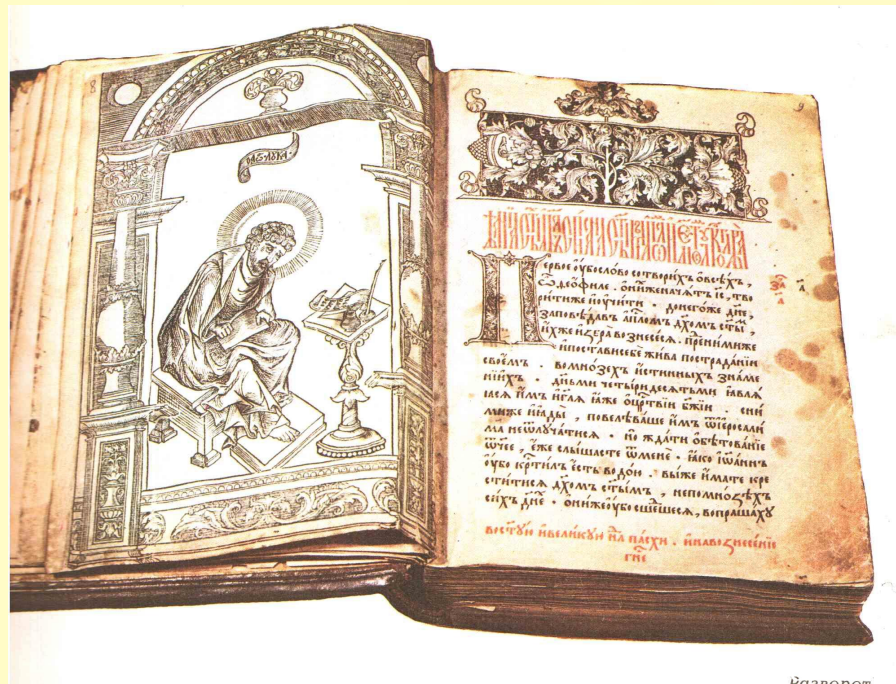 8
9
Первое ѹбо сло́во сотвори́хъ ѡ всѣ́хъ,
ѽ ѳео́филе. ѡ ни́хже нача́тъ і҃с, тво
ри́тиже и҆ ѹ҆чи́ти. до него́же днѐ,
заповѣ́давъ а҆п҃ломъ д҃хомъ ст҃ы,
и҆́хже и҆збра̀ вознесе́ся. пре ни́миже
и҆ поста́ви себѐ жи́ва по страда́нїи
свое́мъ. во мно́зѣхъ и҆́стинныхъ зна́ме
нїихъ. дн҃ьми четы́ридесятьми ꙗ҆вля́
яся и҆́мъ и҆ г҃ля ꙗ҆́же ѡ҆ цр҃твїи бж҃їи. сни
миже и҆ ꙗ҆ды̀, повелѣва́ше и҆́мъ ѿ і҆еросали
ма не ѿлуча́тися. но жда́ти ѡ҆бѣтова́нїе
ѻ҆́тчее. е҆́же слы́шасте ѿ менѐ. ꙗ҆́ко і҆ѡа́ннъ
ѹ҆́бо кр҃ти́лъ є҆́сть водо́ю. вы́же и҆́мате кре
сти́тися д҃хомъ ст҃ы́мъ, не по мно́зѣхъ
си́хъ дн҃е. ѻ҆ни́же ѹ҆́бо сше́дшеся, вопраша́хѹ
в ст҃ую и҆ вели́кую н҃лю па́схи. и҆ на вознесе́нїе
гн҃е
Разворот